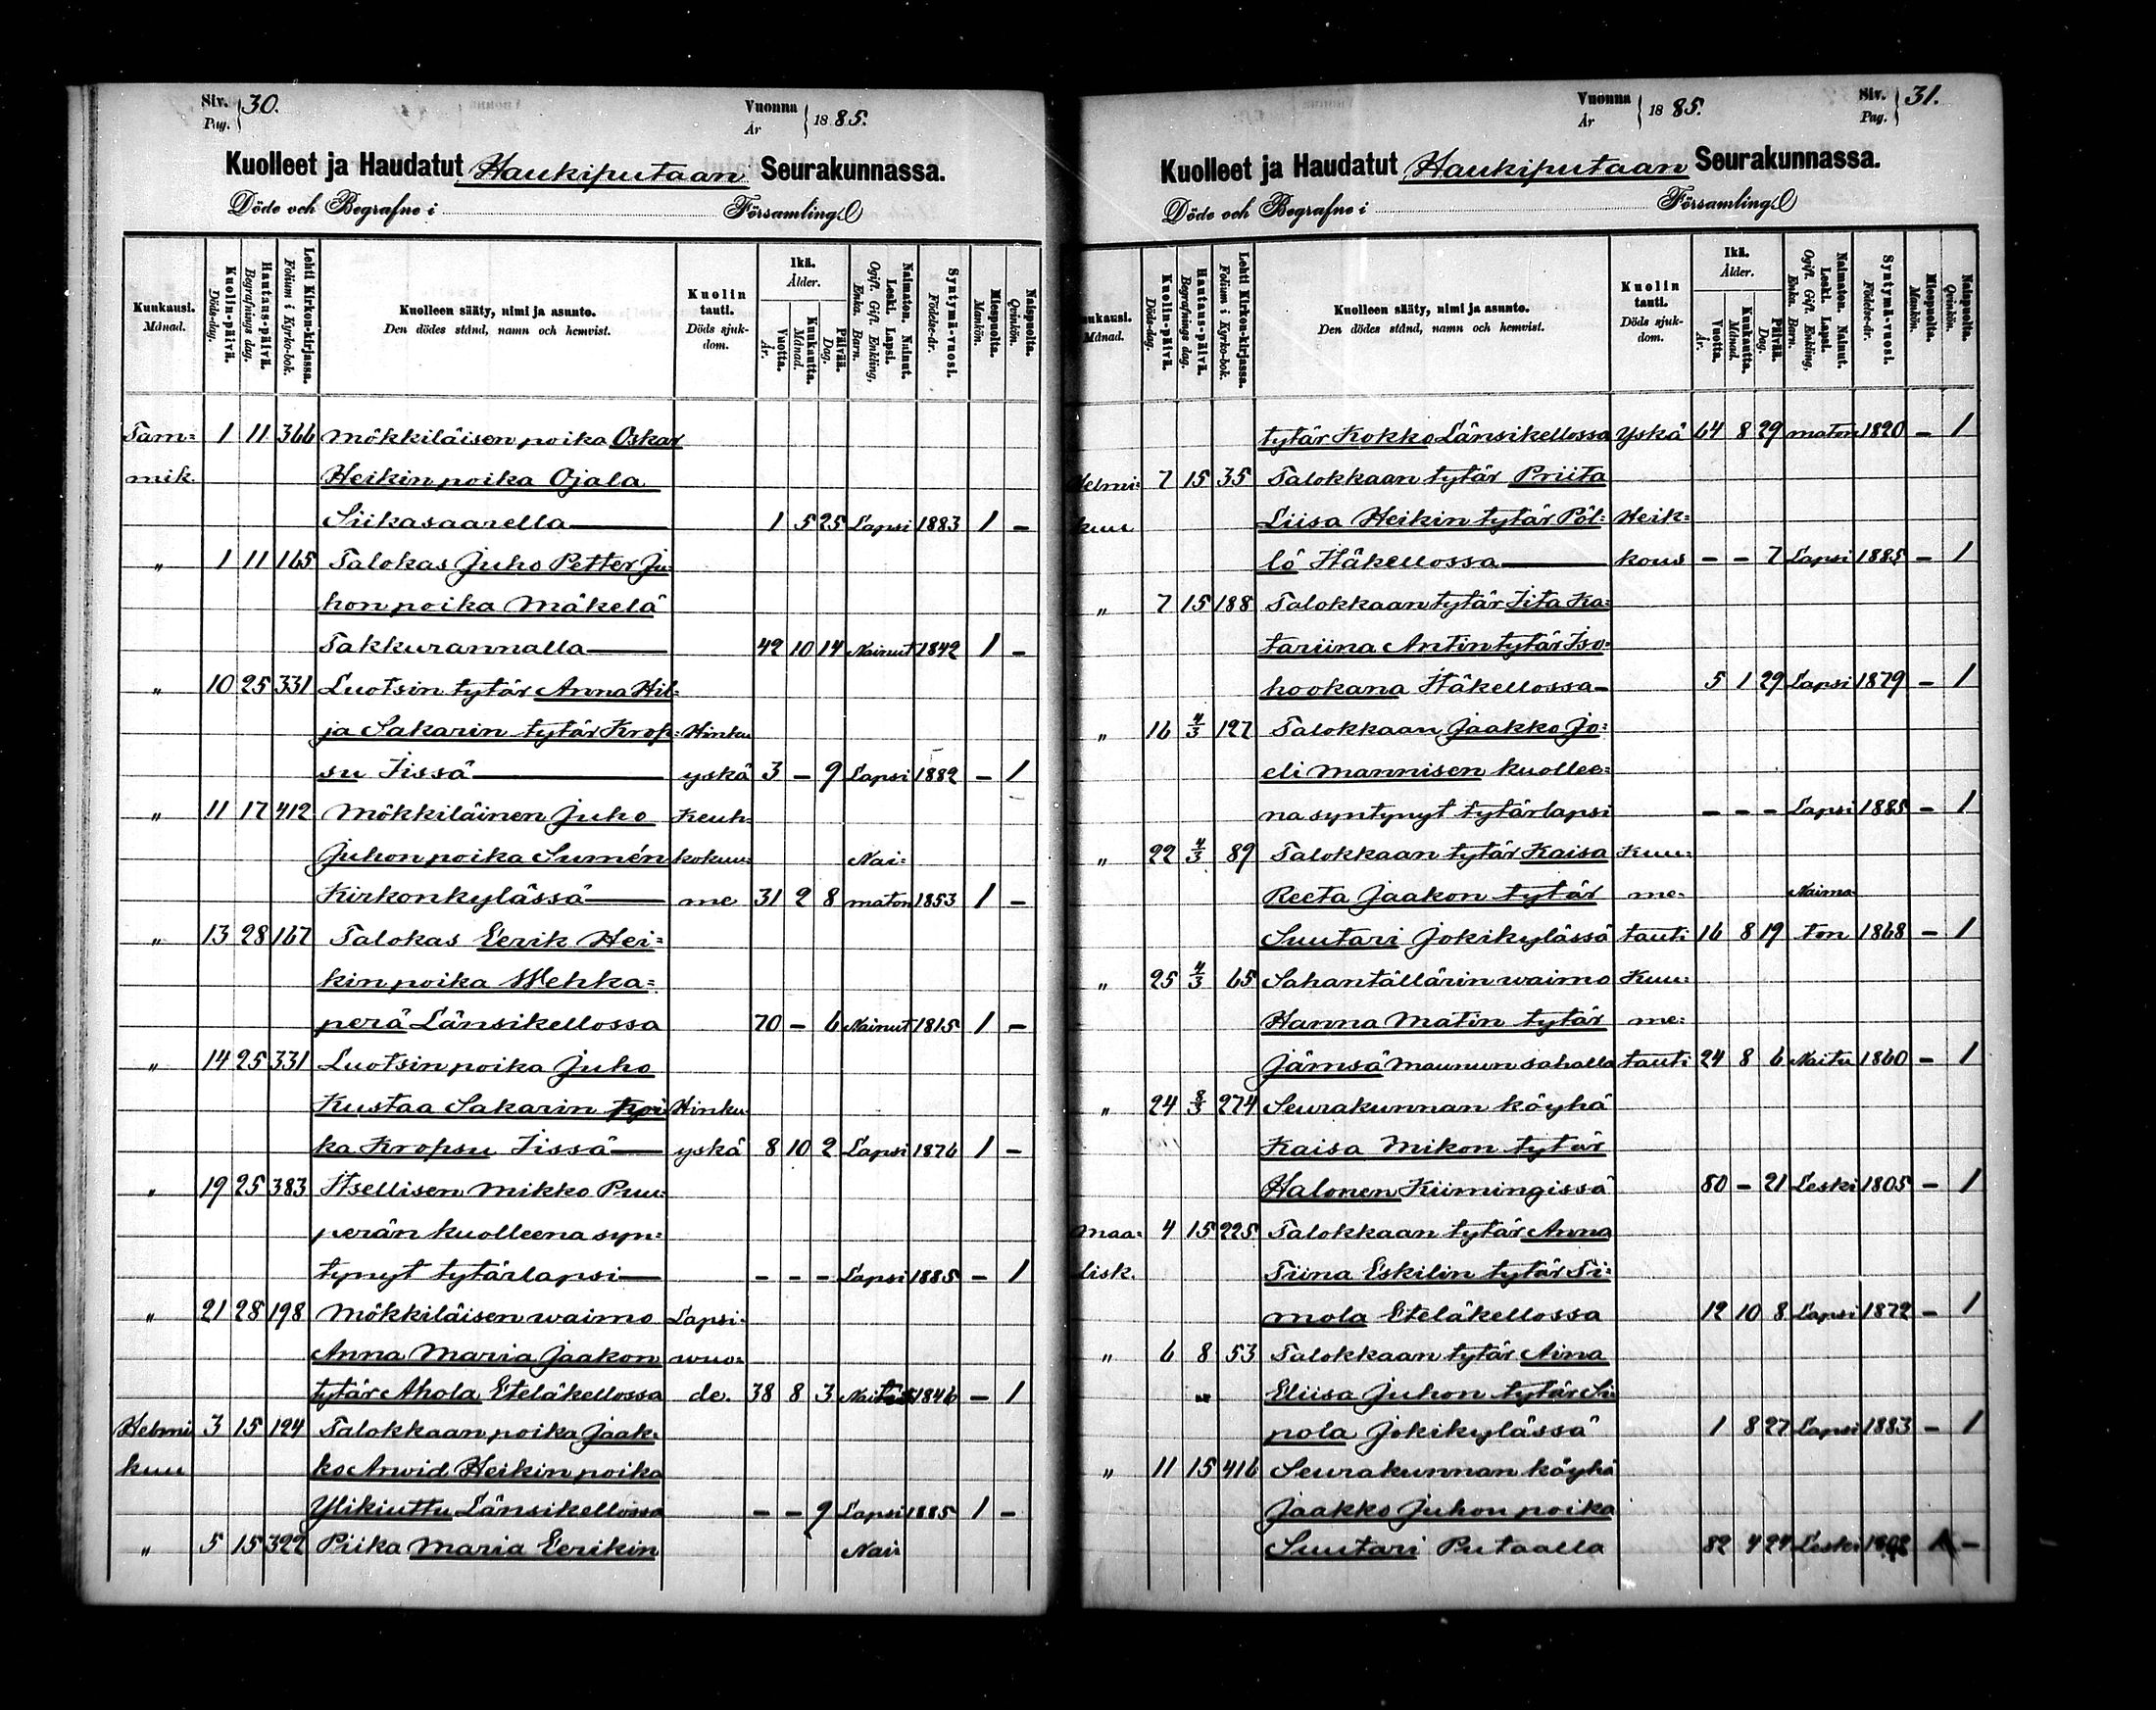 Siv. Pag. 30. Vuonna År 1885.
Kuolleet ja Haudatut Haukiputaan Seurakunnassa.
Döde och Begrafne i Församling
Kuukausi. Månad. Kuolin-päivä. Döds-dag. Hautaus-päivä. Begrafnings dag. Lehti Kirkon-kirjassa. Folium i Kyrko-bok. Kuolleen sääty, nimi ja asunto. Den dödes stånd, namn och hemvist. Kuolin tauti. Döds sjuk-dom. Ikä. Ålder. Vuotta. År. Kuukautta. Månad. Päivää. Dag. Naimaton. Nainut. Leski. Lapsi. Ogift. Gift. Enkling, Enka. Barn. Syntymä-vuosi. Födelse-år. Miespuolta. Mankön. Naispuolta. Qvinkön.
Tam= 1 11 366 Mökkiläisen poika Oskar
mik. Heikin poika Ojala
Siikasaarella 1 5 25 Lapsi 1883 1 -
" 1 11 165 Talokas Juho Petter Ju
hon poika Mäkelä
Takkurannalla 42 10 14 Nainut 1842 1 -
" 10 25 331 Luotsin tytär Anna Hil=
ja Sakarin tytär Krop= Hinku
su Iissä yskä 3 - 9 Lapsi 1882 - 1
" 11 17 412 Mökkiläinen Juho Keuh=
Juhon poika Sumén kokuu= Nai=
Kirkonkylässä me 31 2 8 maton 1853 1 -
" 13 28 167 Talokas Eerik Hei=
kin poika Wehka=
perä Länsikellossa 70 - 6 Nainut 1815 1 -
" 14 25 331 Luotsin poika Juho
Kustaa Sakarin poi Hinku
ka Kropsu Iissä yskä 8 10 2 Lapsi 1876 1 -
" 19 25 383 Itsellisen Mikko Puu=
perän kuolleena syn=
tynyt tytärlapsi - - - Lapsi 1885 - 1
" 21 28 198 Mökkiläisen waimo Lapsi=
Anna Maria Jaakon wuo=
tytär Ahola Eteläkellossa de. 38 8 3 1846 - 1
Helmi 3 15 194 Talokkaan poika Jaak=
kuu ko Arwid Heikin poika
Ylikiuttu Länsikellossa - - 9 Lapsi 1885 1 -
" 5 15 322 Piika Maria Eerikin Nai
Vuonna År 1885. Siv. Pag. 31.
Kuolleet ja Haudatut Haukiputaan Seurakunnassa.
Döde och Begrafne i Församling
uukausi. Månad. Kuolin-päivä. Döds-dag. Hautaus-päivä. Begrafnings dag. Lehti Kirkon-kirjassa. Folium i Kyrko-bok. Kuolleen sääty, nimi ja asunto. Den dödes stånd, namn och hemvist. Kuolin tauti. Döds sjuk-dom. Ikä. Ålder. Vuotta. År. Kuukautta. Månad. Päivää. Dag. Naimaton. Nainut. Leski. Lapsi. Ogift. Gift. Enkling, Enka. Barn. Syntymä-vuosi. Födelse-år. Miespuolta. Mankön. Naispuolta. Qvinkön.
tytär Kokko Länsikellossa Yskä 64 8 29 maton 1820 - 1
Helmi= 7 15 35 Talokkaan tytär Priita
kuu Liisa Heikin tytär Pöl= Heik=
lö Häkellossa kous - - 7 Lapsi 1885 - 1
" 7 15 188 Talokkaan tytär Iita Ka=
tariina Antin tytär Iso=
hookana Häkellossa 5 1 29 Lapsi 1879 - 1
" 16 4/3 127 Talokkaan Jaakko Jo=
eli Mannisen kuollee=
na syntynyt tytärlapsi - - - Lapsi 1885 - 1
" 22 4/3 89 Talokkaan tytär Kaisa Kuu=
Reeta Jaakon tytär me= Naima
Suutari Jokikylässä tauti 16 8 19 ton 1868 - 1
" 25 4/3 65 Sahantällärin waimo Kuu=
Hanna Matin tytär me=
Jämsä Maunun sahalla tauti 24 8 6 Naitu 1860 - 1
" 24 8/3 274 Seurakunnan köyhä
Kaisa Mikon tytär
Halonen Kiimingissä 80 - 21 Leski 1805 - 1
Maa= 4 15 225 Talokkaan tytär Anna
lisk. Tiina Eskilin tytär Ti=
mola Eteläkellossa 12 10 8 Lapsi 1872 - 1
" 6 8 53 Talokkaan tytär Aina
Eliisa Juhon tytär Si
pola Jokikylässä 1 8 27 Lapsi 1883 - 1
" 11 15 416 Seurakunnan köyhä
Jaakko Juhon poika
Suutari Putaalla 82 4 24 Leski 1 -